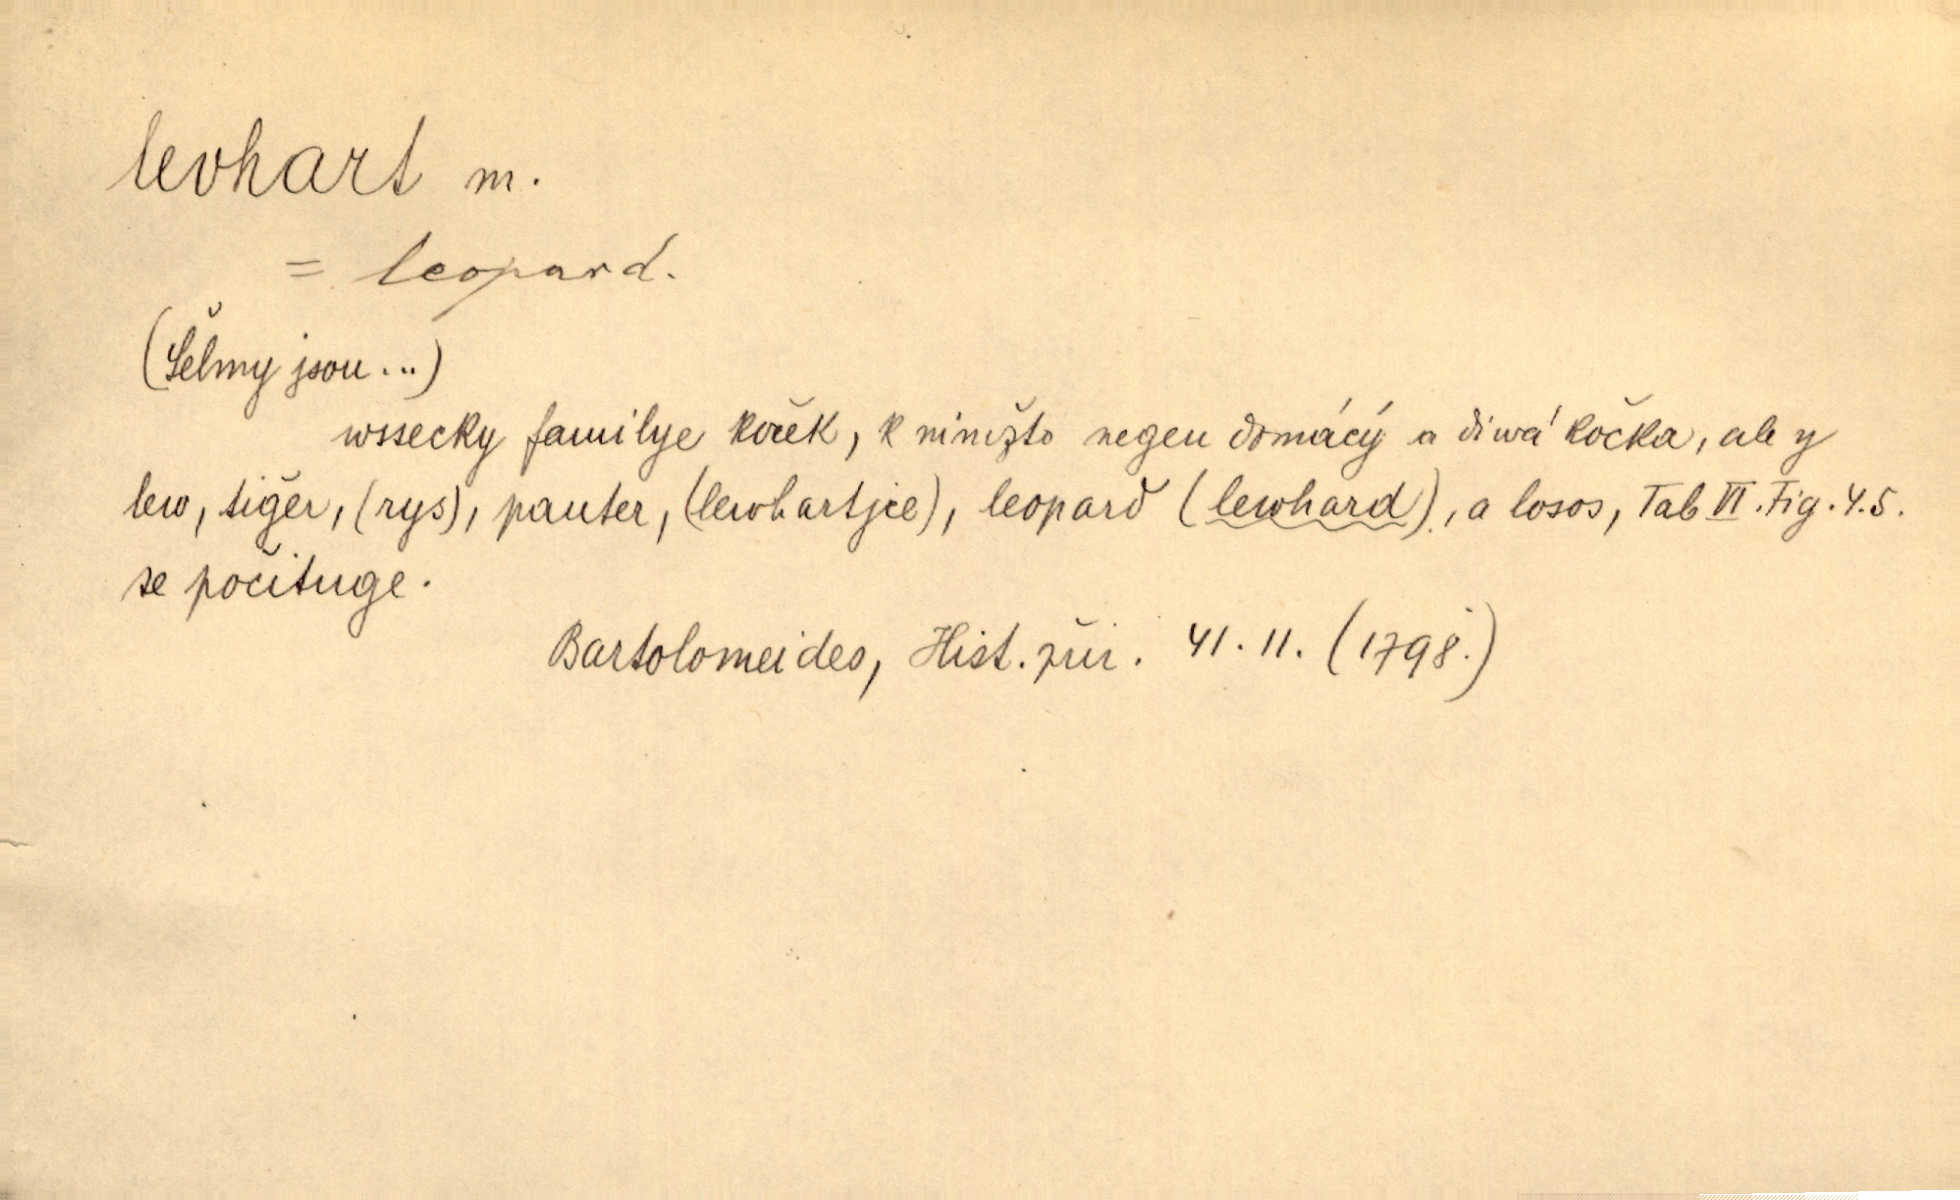 levhart m.
= leopard.
(Šelmy jsou...)
wssecky familye koček, k nimžto negen domácý a diwá kočka, ale y
lew, tiğer, (rys), panter, (lewhartjce), leopard (lewhard), a losos, Tab VI. Fig. 4.5.
se počituge.
Bartolomeides, Hist. přir. 41. 11. (1798.)